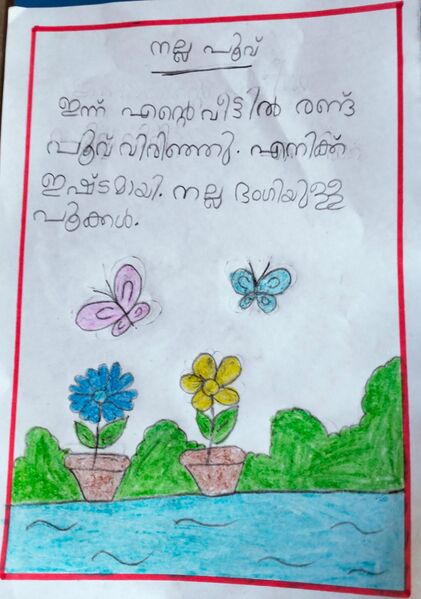 നല്ല പൂവ്
ഇന്ന് എൻ്റെ വീട്ടിൽ രണ്ട്
പൂവ് വിരിഞ്ഞു. എനിക്ക്
ഇഷ്ടമായി. നല്ല ഭംഗിയുള്ള
പൂക്കൾ.